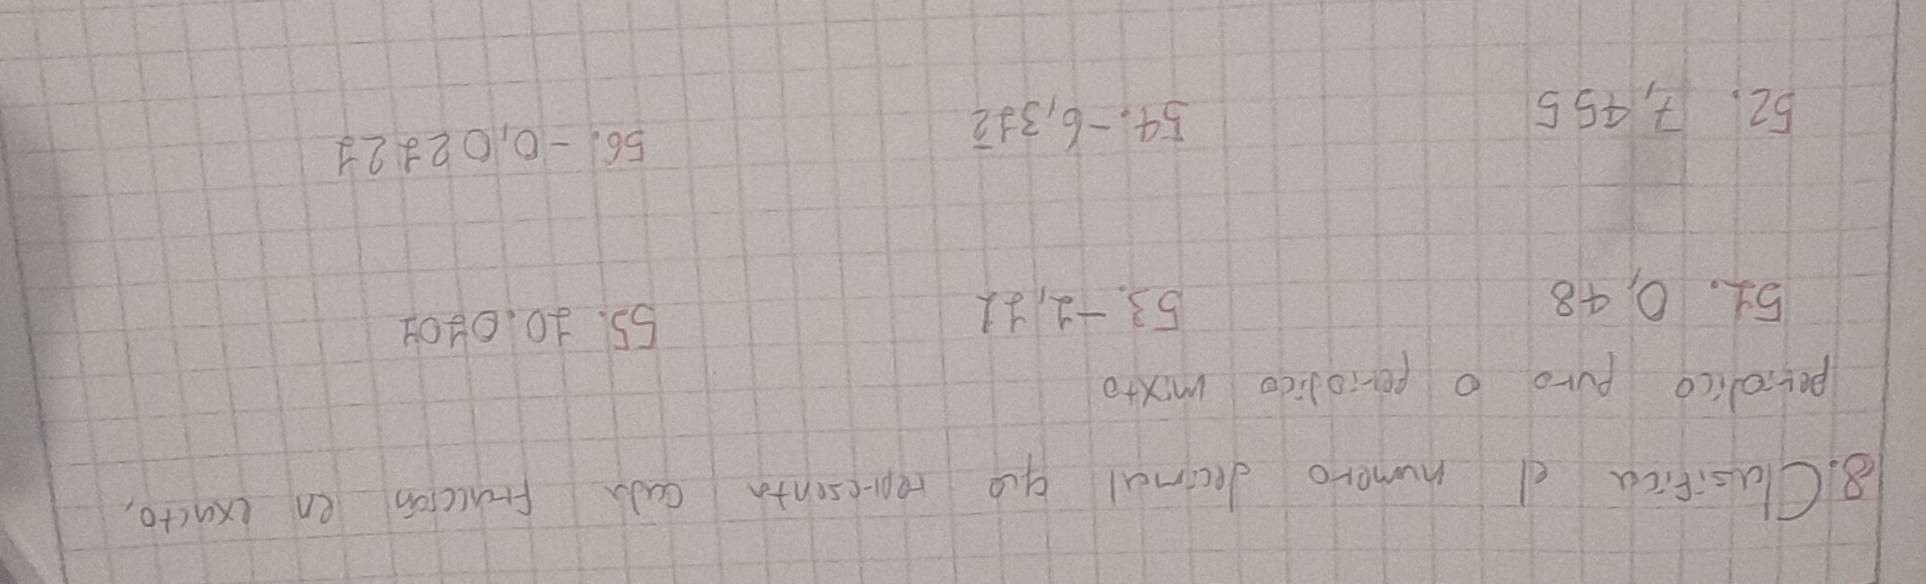 8. Clasifica el numero decimal que representa cada fracción en exacto,
periodico puro o periodico mixto
51. 0,48 53. -1,11 55. 10.0101
52. 7,455 54. -6,312̅ 56. -0,02121